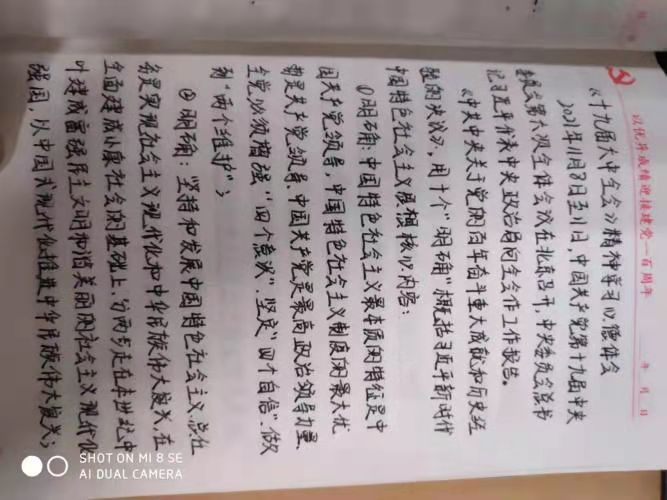 以优异成绩迎接建党一百周年
年 月 日
《十九届六中全会》精神学习心德体会
2021年11月8日至11日，中国共产党第十九届中央
委员会第六次全体会议在北京召开，中央委员会总书
记习近平作来中央政治局向全会作工作报告。
《中共中央关于党的百年奋斗重大成就和历史经
验的决议》，用十个“明确”概括习近平新时代
中国特色社会主义思想核心内容：
①明确，中国特色社会主义最本质的特征是中
国共产党领导，中国特色社会主义制度的最大优
势是共产党领导、中国共产党是最高政治领导力量、
全党必须增强“四个意识”、坚定“四个自信”、做
到“两个维护”；
②明确：坚持和发展中国特色社会主义，总任
务是实现社会主义现代化和中华民族伟大复兴，在
全面建成小康社会的基础上；分两步走在本世纪中
叶建成富强民主文明和谐美丽的社会主义现代化
强国，以中国式现代化推进中华民族伟大复兴；
SHOT ON MI 8 SE
AI DUAL CAMERA